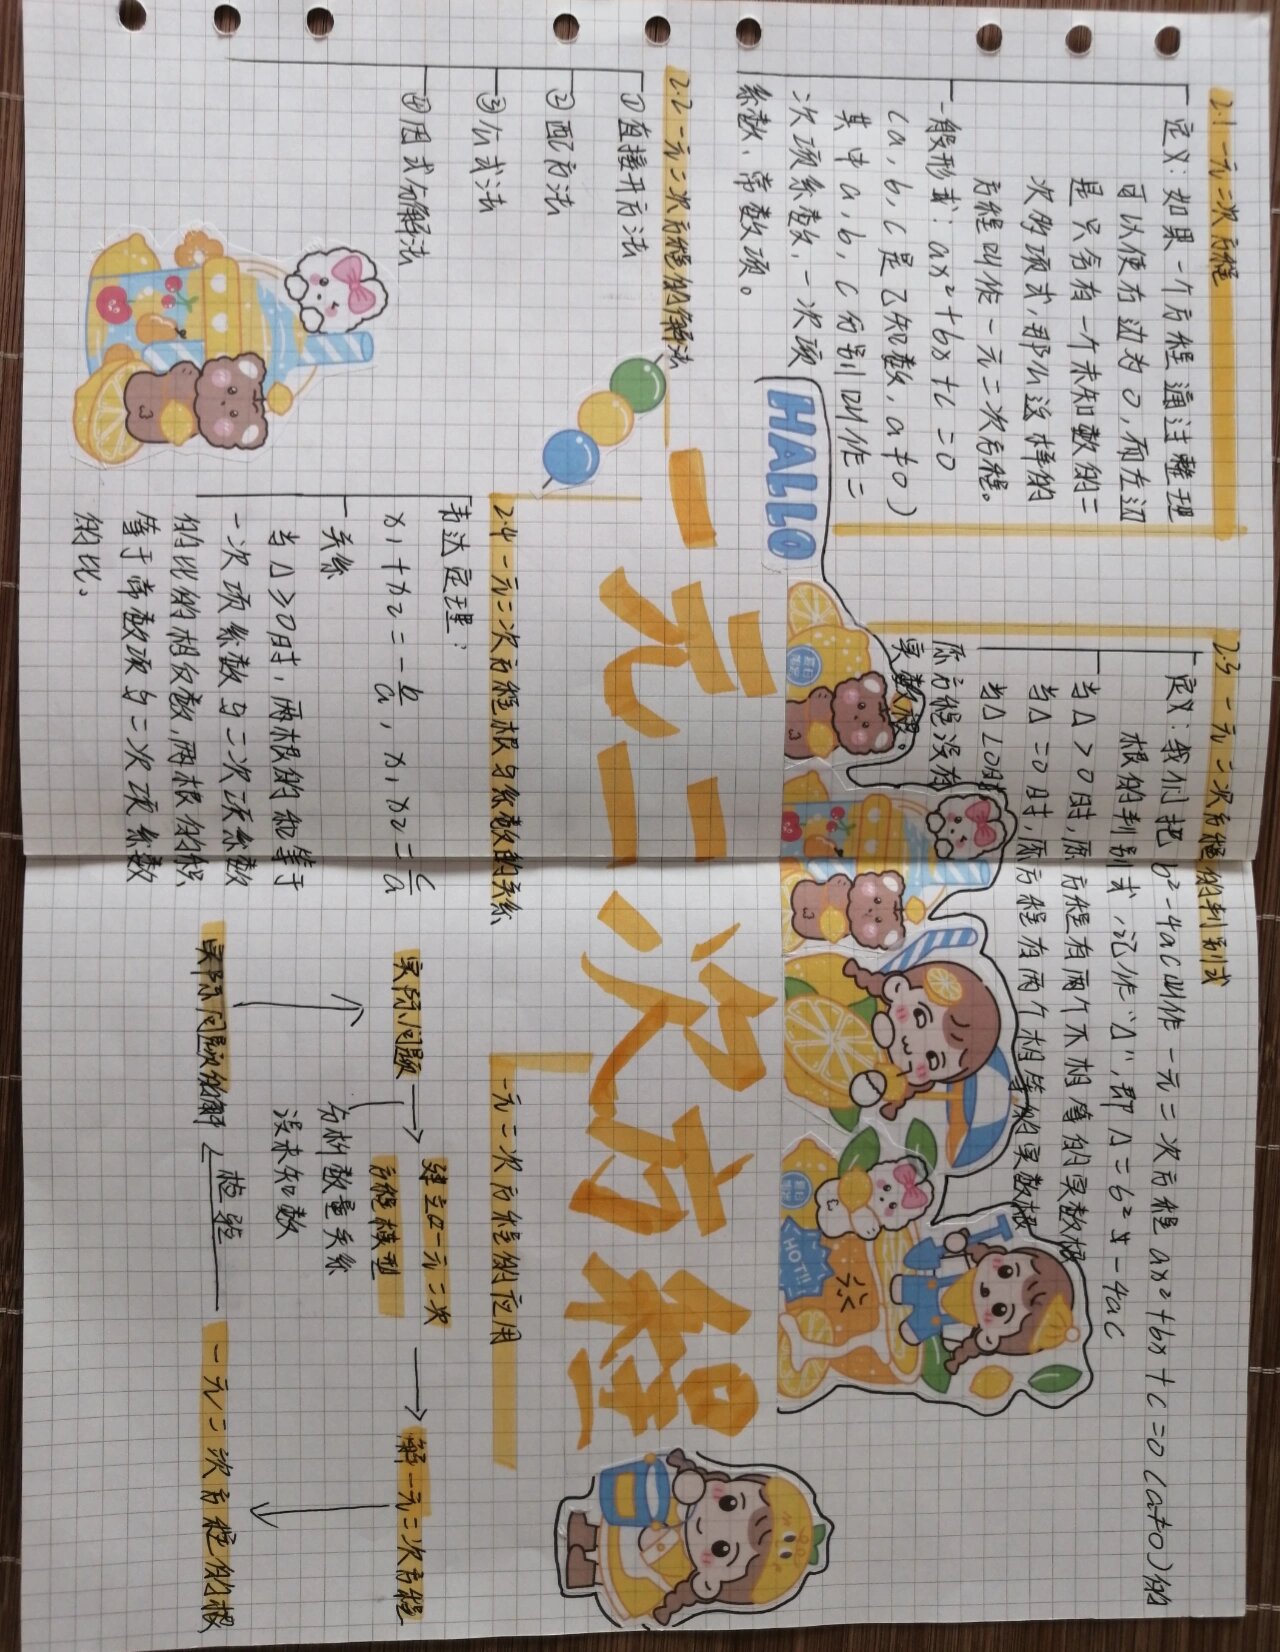 2.1 一元二次方程
定义：如果一个方程通过整理
可以使右边为0，而左边
是只含有一个未知数的二
次的项式，那么这样的
方程叫作一元二次方程。
一般形式：ax²+bx+c=0
(a，b，c是已知数，a≠0)
其中a，b，c分别叫作二
次项系数、一次项
系数、常数项。
2.2 一元二次方程的解法
①直接开方法
②配方法
③公式法
④因式分解法
HALLO
一元二次方程
2.3 一元二次方程的判别式
定义：我们把b²-4ac叫作一元二次方程ax²+bx+c=0(a≠0)的
根的判别式，记作"Δ"，即Δ=b²-4ac
当Δ>0时，原方程有两个不相等的实数根
当Δ=0时，原方程有两个相等的实数根
当Δ<0时
原方程没有
实数根。
HOT!!
2.4 一元二次方程根与系数的关系
韦达定理：
x₁+x₂=-b/a，x₁x₂=c/a
关系
当Δ≥0时，两根的和等于
一次项系数与二次项系数
的比的相反数，两根的积
等于常数项与二次项系数
的比。
一元二次方程的应用
实际问题
建立一元二次
方程模型
解一元二次方程
分析数量关系
设未知数
实际问题的解
检验
一元二次方程的根